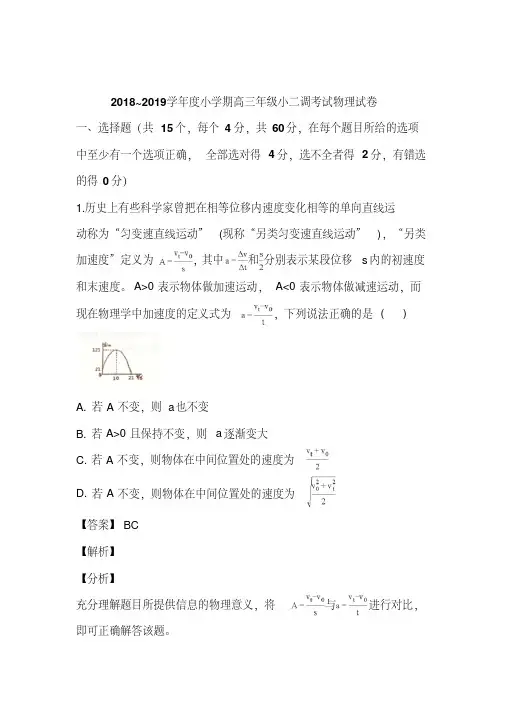 2018~2019学年度小学期高三年级小二调考试物理试卷
一、选择题（共 15个，每个 4分，共 60分，在每个题目所给的选项
中至少有一个选项正确， 全部选对得 4分，选不全者得 2分，有错选
的得 0分）
1.历史上有些科学家曾把在相等位移内速度变化相等的单向直线运
动称为“匀变速直线运动” (现称“另类匀变速直线运动” )，“另类
加速度”定义为 A=(vt-v0)/s，其中a=Δv/Δt和s/2分别表示某段位移 s内的初速度
和末速度。A>0 表示物体做加速运动， A<0 表示物体做减速运动，而
现在物理学中加速度的定义式为 a=(vt-v0)/t，下列说法正确的是（ ）
A. 若 A 不变，则 a也不变
B. 若 A>0 且保持不变，则 a逐渐变大
C. 若 A 不变，则物体在中间位置处的速度为 (vt+v0)/2
D. 若 A 不变，则物体在中间位置处的速度为 √((v0²+vt²)/2)
【答案】 BC
【解析】
【分析】
充分理解题目所提供信息的物理意义，将 A=(vt-v0)/s与a=(vt-v0)/t进行对比，
即可正确解答该题。